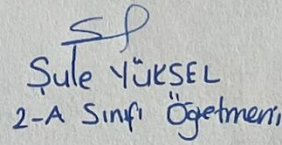 Şule YÜKSEL
2-A Sınıfı Öğetmeni